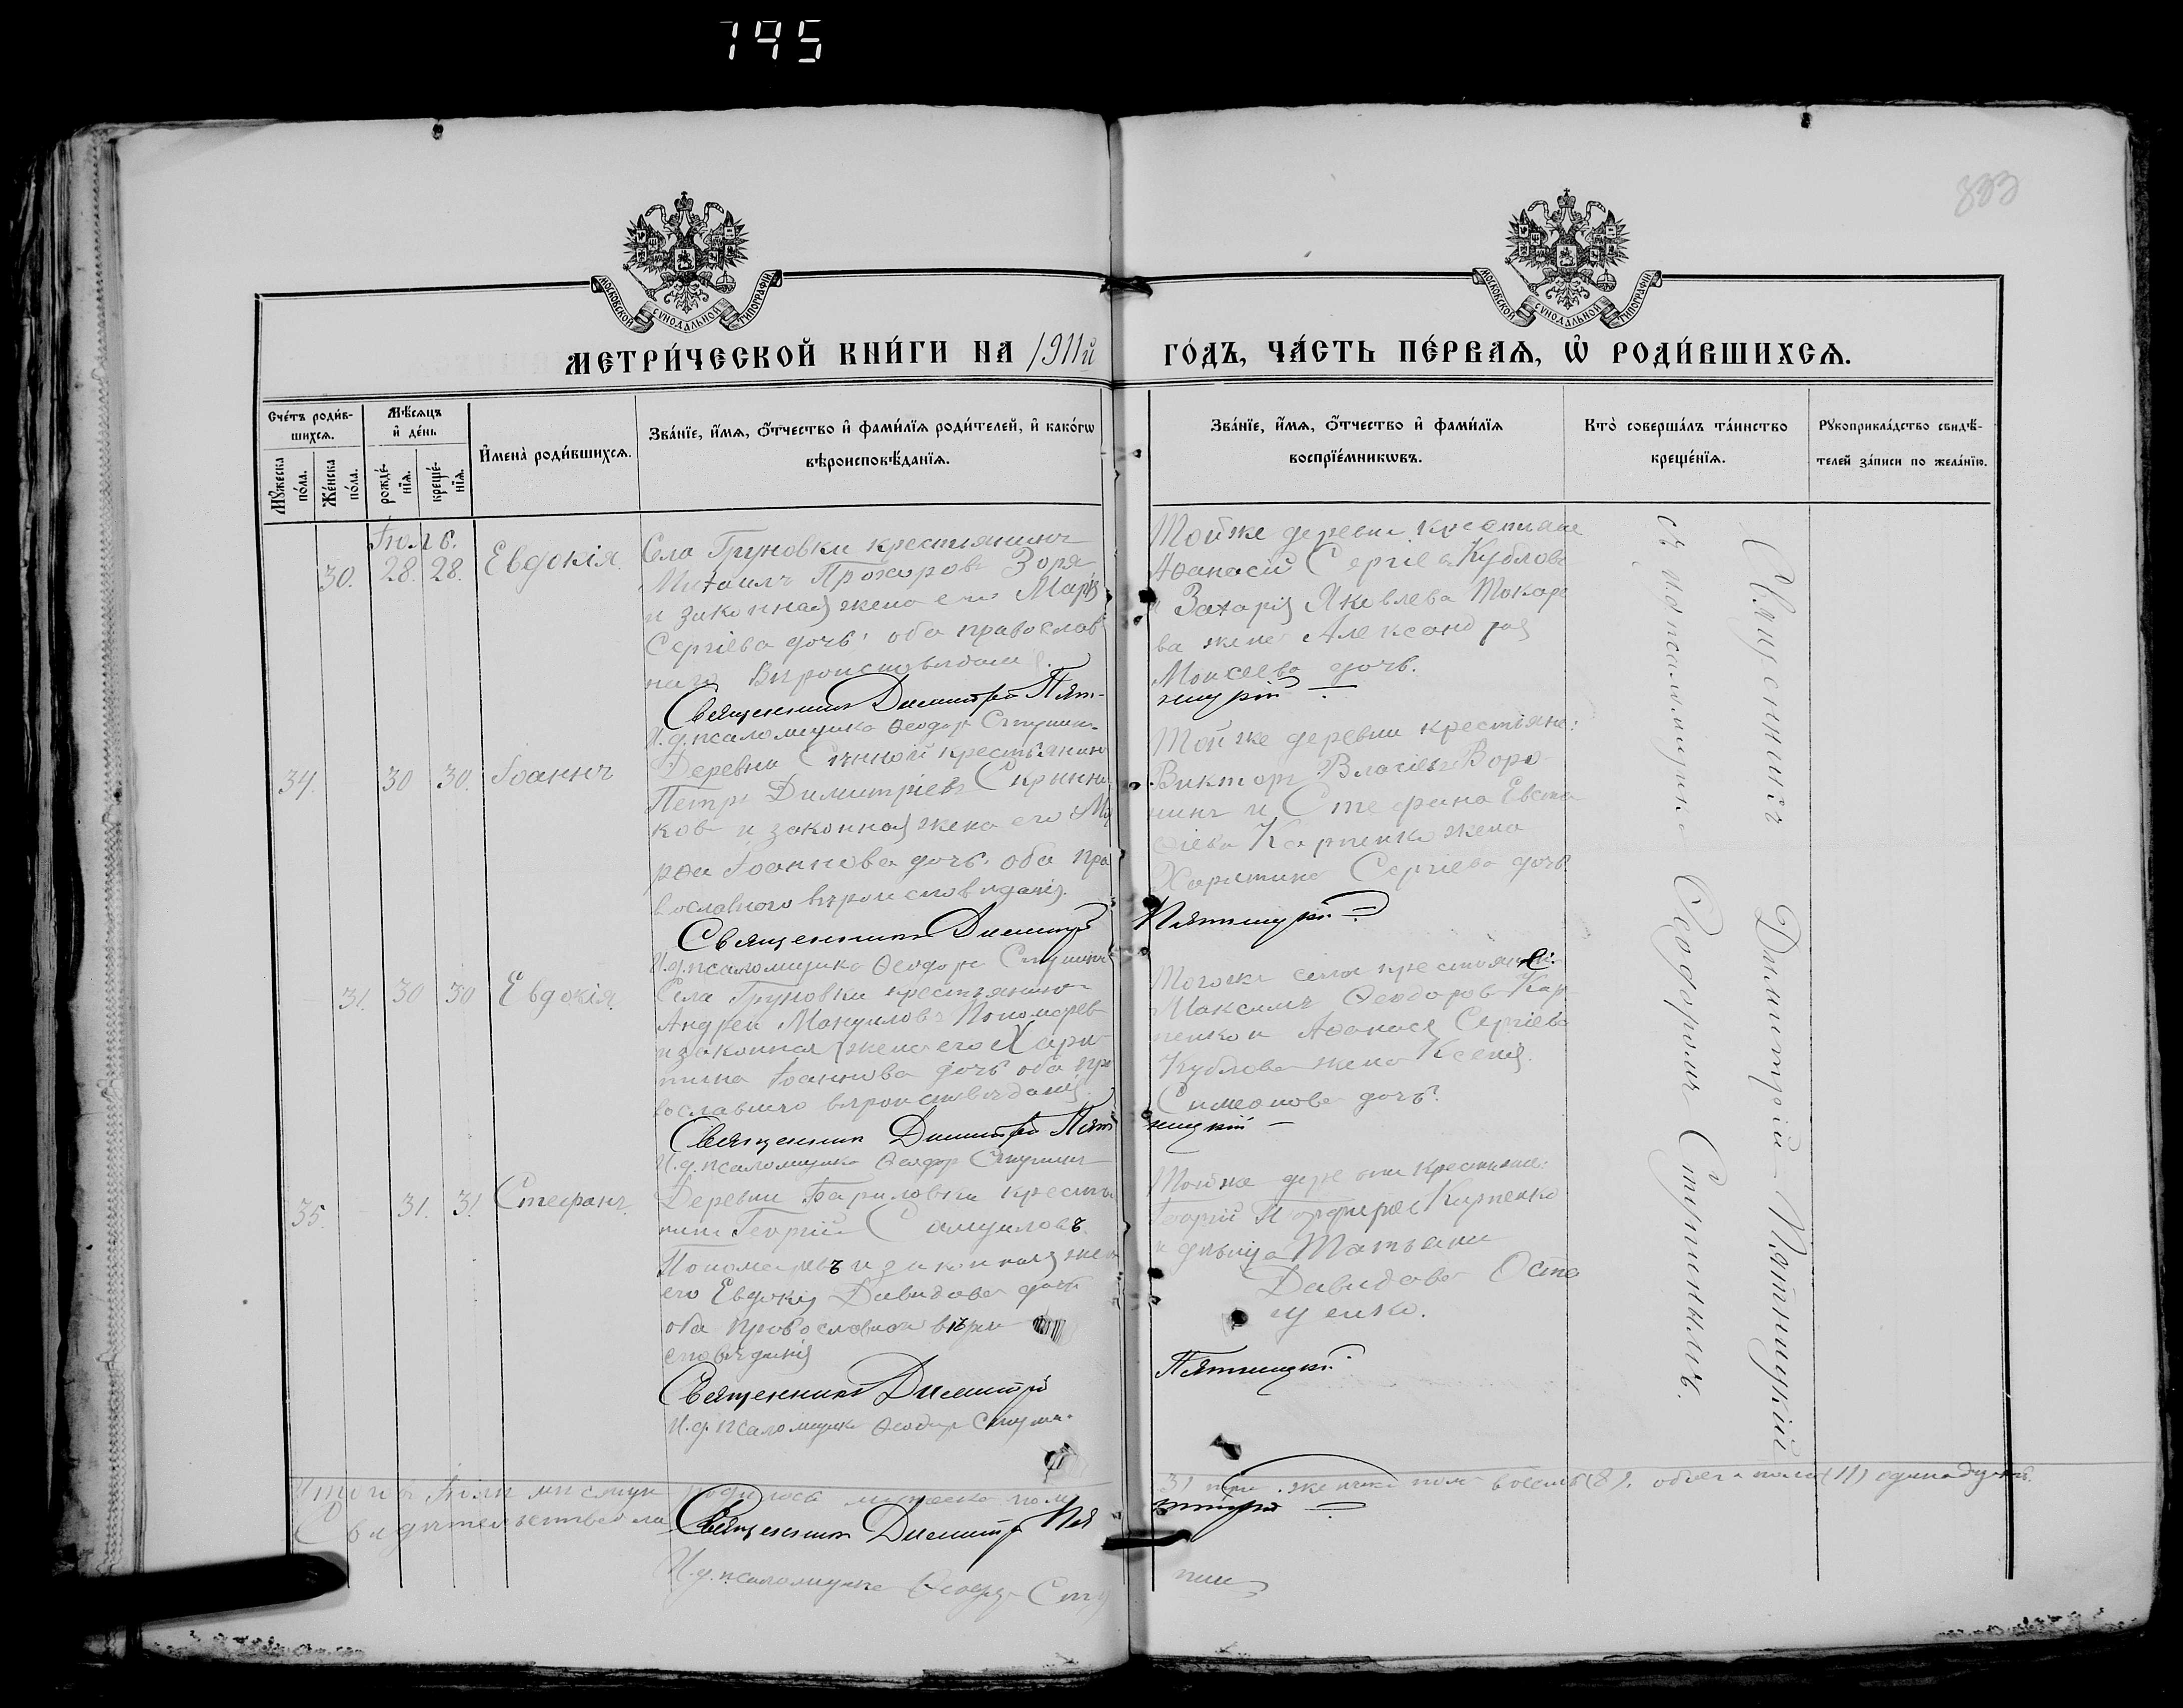 745
833
МОСКОВСКОЙ СѴНОДАЛЬНОЙ ТИПОГРАФІИ
МОСКОВСКОЙ СѴНОДАЛЬНОЙ ТИПОГРАФІИ
МЕТРИ́ЧЕСКОЙ КНИ́ГИ НА 1911й ГО́ДЪ, ЧА́СТЬ ПЕ́РВАѦ, Ѡ҆ РОДИ́ВШИХСѦ.
Сче́тъ роди́в-
шихсѧ.
Мꙋ́жеска
по́ла.
Же́нска
по́ла.
Мѣ́сѧцъ
и҆ де́нь
рожде́-
нїѧ.
креще́-
нїѧ.
И҆мена̀ роди́вшихсѧ.
Зва́нїе, и҆́мѧ, ѻ҆́тчество и҆ фами́лїѧ роди́телей, и҆ како́гѡ
вѣроисповѣ́данїѧ.
Зва́нїе, и҆́мѧ, ѻ҆́тчество и҆ фами́лїѧ
воспрїе́мникѡвъ.
Кто̀ соверша́лъ та́инство
креще́нїѧ.
Рꙋкоприкла́дство свидѣ́-
телей за́писи по жела́нїю.
Іюль.
30. 28. 28. Евдокія.
Села Груновки крестьянинъ
Михаилъ Прохоровъ Зоря
и законная жена его Марія
Сергіева дочь, оба православ
наго вѣроисповѣданія.
Священникъ Димитрій Пят-
И.д. псаломщика Ѳеодоръ Ступинъ
Той же деревни крестьяне
Аѳанасій Сергіевъ Кубловъ
и Захарія Яковлева Токаре
ва жена Александра
Моисеева дочь.
ницкій
34. 30 30. Іоаннъ
Деревни крестьянинъ
Петръ Димитріевъ Скринни
ков и законная жена его Ма
рѳа Іоаннова дочь, оба пра
вославного вѣроисповѣданія.
Священникъ Димитрій
И.д. псаломщика Ѳеодоръ Ступинъ
Той же деревни крестьяне:
Викторъ Власіевъ Воро
нинъ и Стефана Евста
ѳіева Карпенко жена
Харитина Сергіева дочь
Пятницкій
31. 30 30 Евдокія.
Села Груновки крестьянинъ
Андрей Мануиловъ Пономаревъ
и законная жена его Хари
тина Іоаннова дочь оба пра
вославнаго вѣроисповѣданія.
Священникъ Димитрій Пят
И.д. псаломщика Ѳеодоръ Ступинъ
Того же села крестьяне:
Максимъ Ѳеодоровъ Кар
пенко и Аѳанасія Сергіева
Кублова жена Ксенія
Симеонова дочь.
ницкій
35. 31. 31 Стефанъ.
Деревни Гариловки крестья
нинъ Георгій Самуиловъ
Пономаревъ и законная жена
его Евдокія Давидова дочь
оба православнаго вѣрои
сповѣданія
Священникъ Димитрій
И.д. псаломщика Ѳеодоръ Ступи
Той же деревни крестьяне:
Георгій Порфирьевъ Карпенко
и дѣвица Татьяна
Давидова Оста
щенко.
Пятницкій
Священникъ Димитрій Пятницкій
съ и д псаломщика Ѳеодоромъ Ступинымъ.
Итого въ Іюлѣ мѣсяцѣ родилось мужеска пола
3) три, женска пола восемь (8), обоего пола (11) одинадцать.
Священникъ Димитрій Пят
ницкій
И.д. псаломщика Ѳеодоръ Сту
пинъ